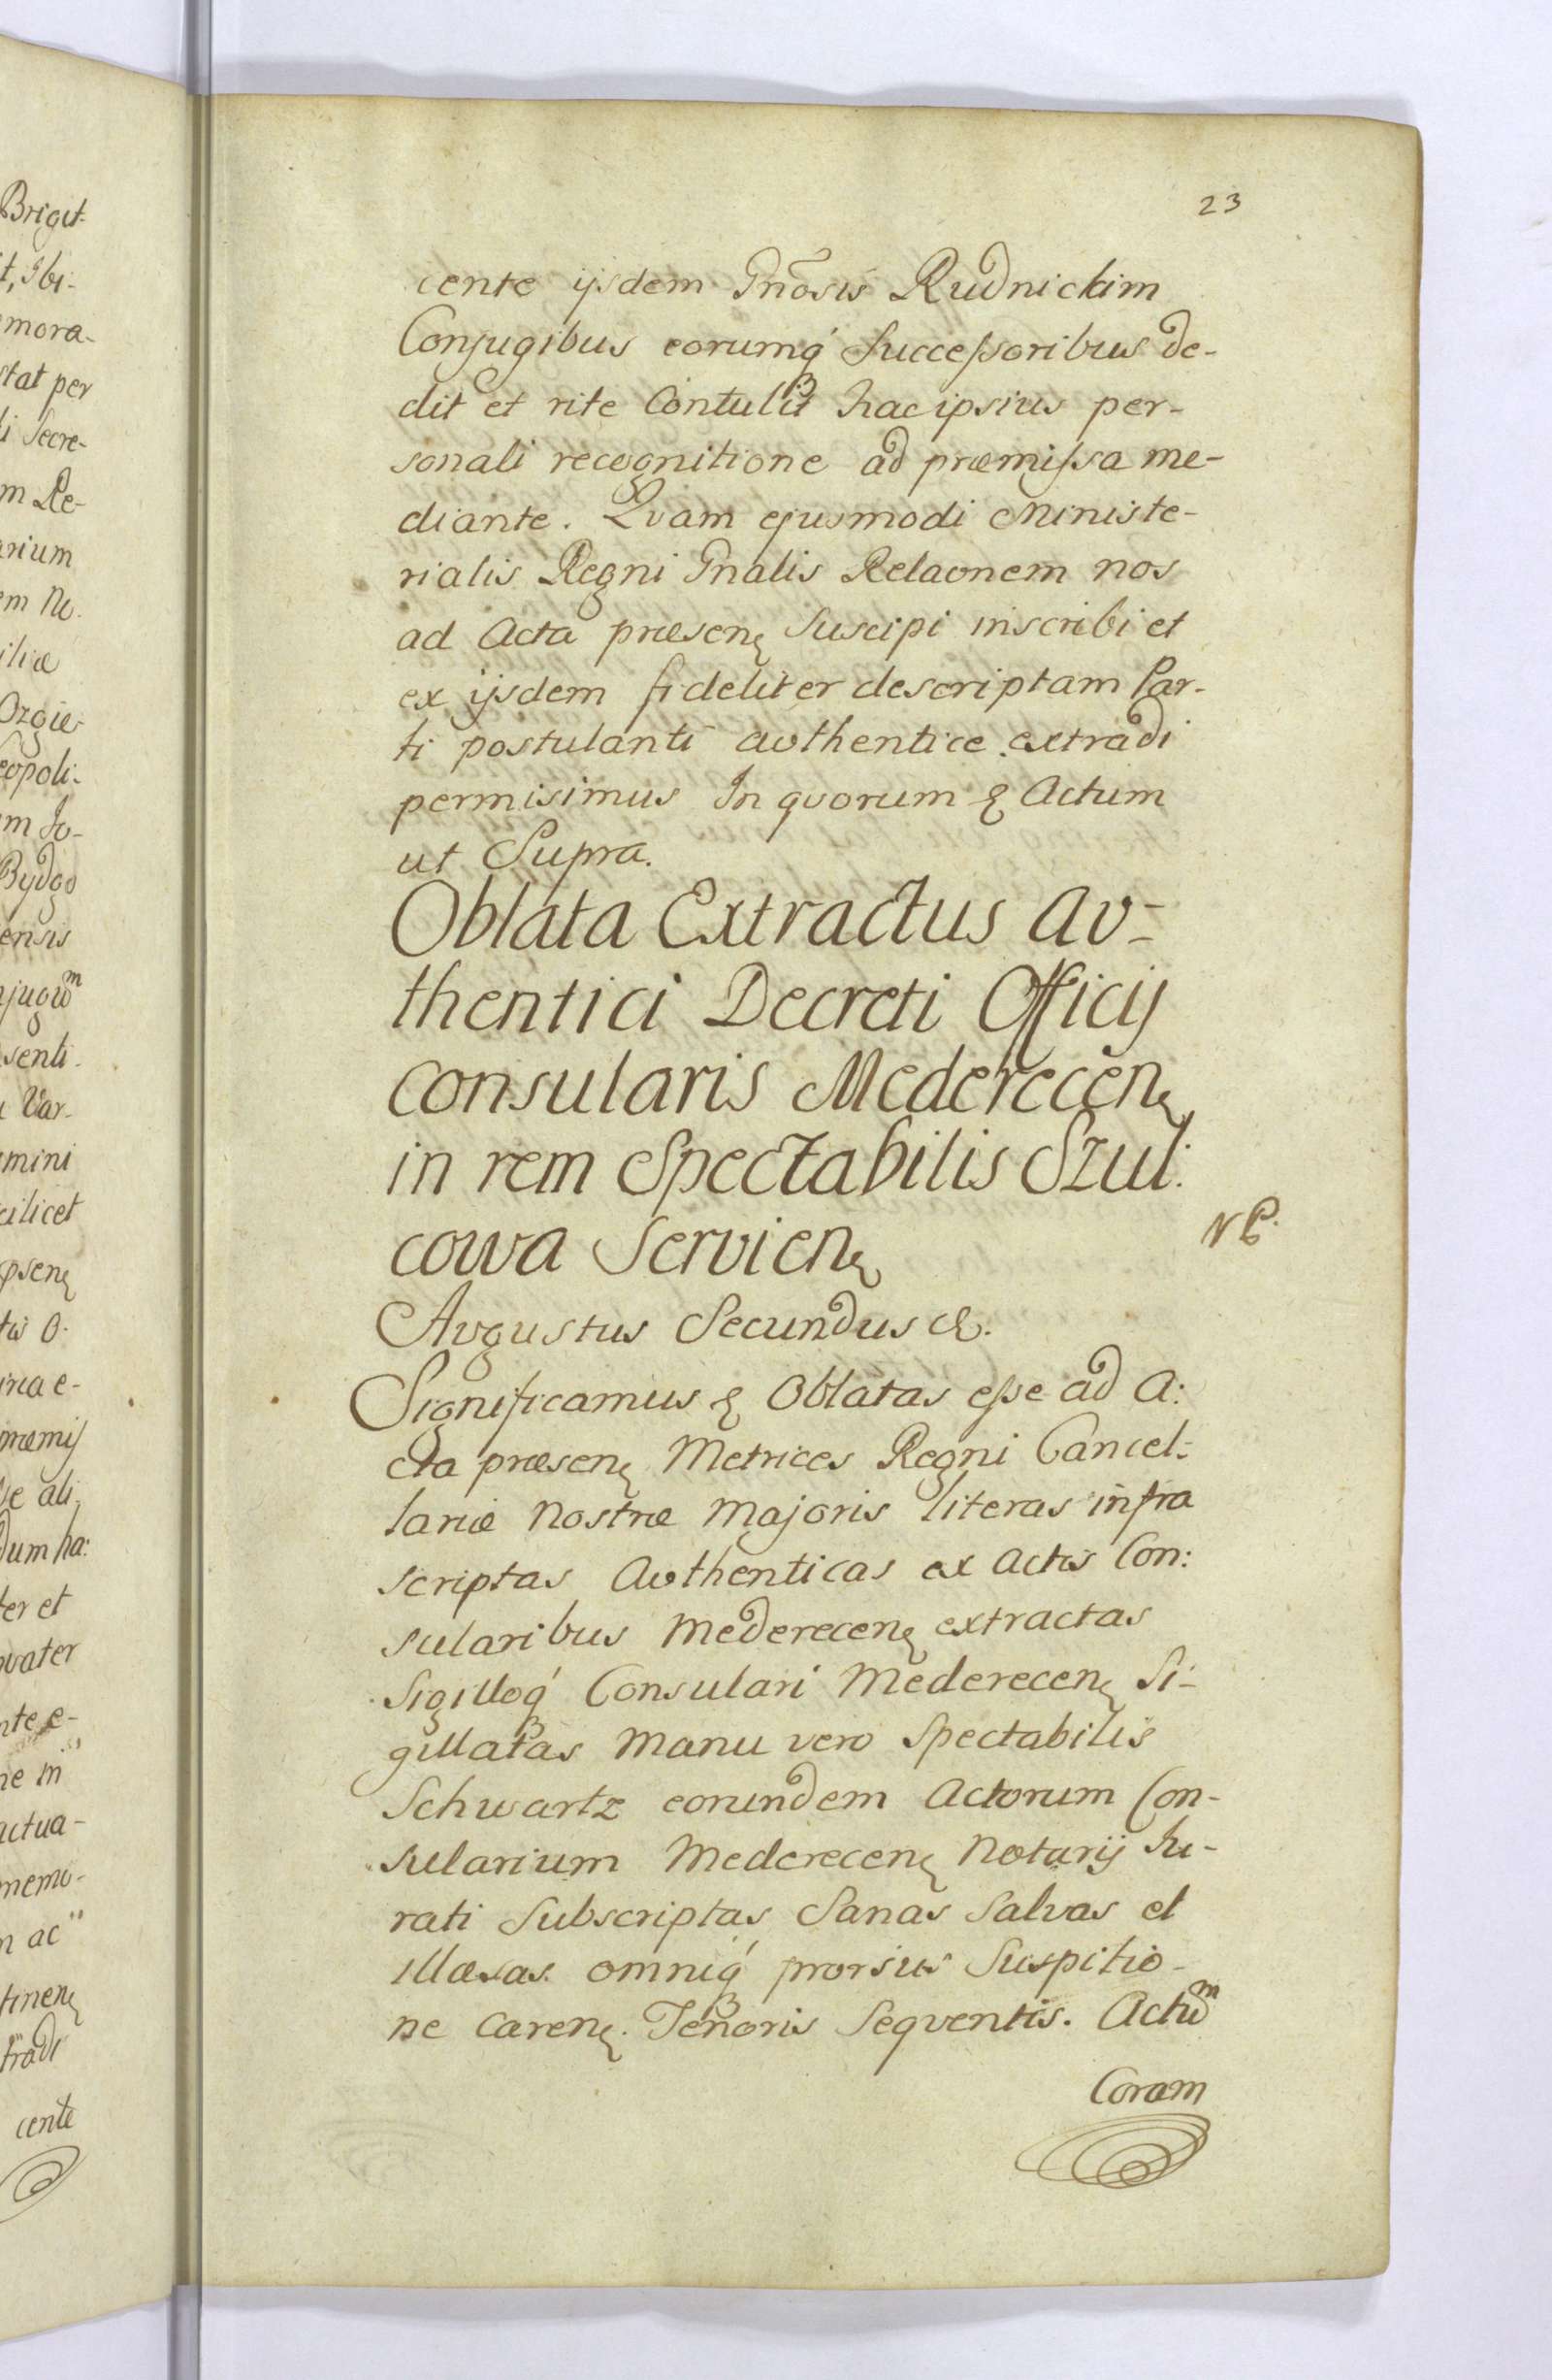 Brigit-
t, Ibi-
mora-
stat per
li Secre-
m Re-
arium
em No.
iliæ
Orgie-
eopoli-
m Jo-
Bydgo
ensis
njugum
senti-
Var-
mini
cilicet
psenę
tis O-
ina e-
præmis
ve ali
dum ha:
ter et
vater
nte e-
ne in
actua-
memo-
m ac
tinenę
tradi
cente
23
cente ijsdem Gnōsis Rudnickim
Conjugibus eorumq́ Successoribus de-
dit et rite Contulit hac ipsius per-
sonali recognitione ad præmissa me-
diante. Qvam ejusmodi Ministe-
rialis Regni Gnalis Relaonem nos
ad Acta præsenę Suscipi inscribi et
ex ijsdem fideliter descriptam Par-
ti postulanti avthentice extradi
permisimus In qvorum ę Actum
ut Supra.
Oblata Extractus Av-
thentici Decreti Officij
consularis Mederecenę
in rem Spectabilis Szul:
cowa Servienę
NP.
Avgustus Secundus &.
Significamus ę Oblatas esse ad A:
cta præsenę Metrices Regni Cancel-
lariæ Nostræ Majoris literas infra
scriptas Avthenticas ex Actis Con:
sularibus Mederecenę extractas
Sigilloq́ Consulari Mederecenę Si-
gillatas Manu vero Spectabilis
Schwartz eorundem Actorum Con-
sularium Mederecenę Notarij Ju-
rati Subscriptas Sanas Salvas et
illæsas omniq́ prorsus Suspitio-
ne carenę. Tenoris Seqventis. Actum
Coram